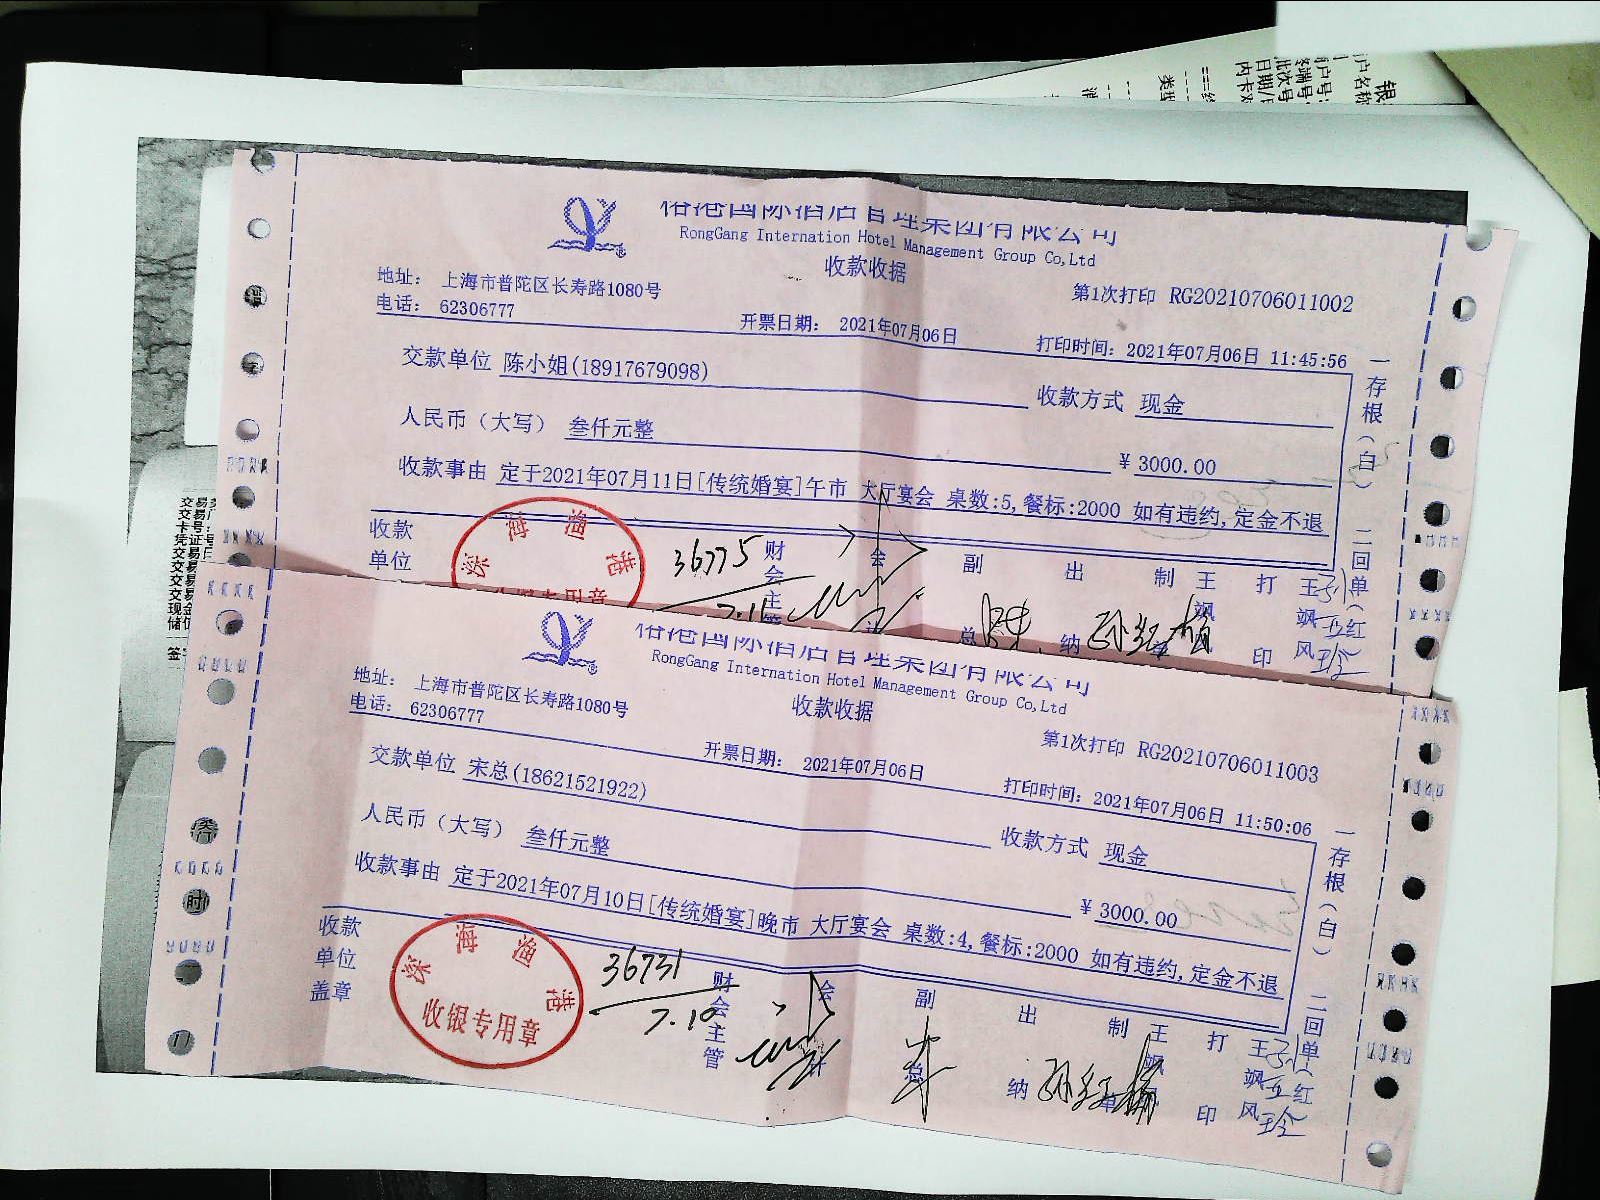 银
户名称
户号:
端号
批次号
日期/
内卡
类
RongGang Internation Hotel Management Group Co,Ltd
收款收据
地址: 上海市普陀区长寿路1080号
第1次打印 RG20210706011002
电话: 62306777
开票日期: 2021年07月06日
打印时间: 2021年07月06日 11:45:56
交款单位 陈小姐(18917679098)
收款方式 现金
人民币(大写) 叁仟元整
¥ 3000.00
收款事由 定于2021年07月11日[传统婚宴]午市 大厅宴会 桌数:5,餐标:2000 如有违约,定金不退
一存根(白) 二回单(红
收款
单位
深海渔港
36775
7.11
财会主管
会
副总
出纳
制单
王飒
打印
王飒风
RongGang Internation Hotel Management Group Co,Ltd
收款收据
地址: 上海市普陀区长寿路1080号
第1次打印 RG20210706011003
电话: 62306777
开票日期: 2021年07月06日
打印时间: 2021年07月06日 11:50:06
交款单位 宋总(18621521922)
收款方式 现金
人民币(大写) 叁仟元整
¥ 3000.00
收款事由 定于2021年07月10日[传统婚宴]晚市 大厅宴会 桌数:4,餐标:2000 如有违约,定金不退
一存根(白) 二回单(红
收款
单位
盖章
深海渔港
收银专用章
36731
7.10
财会主管
会计
副总
出纳
制单
王飒风
打印
王飒风